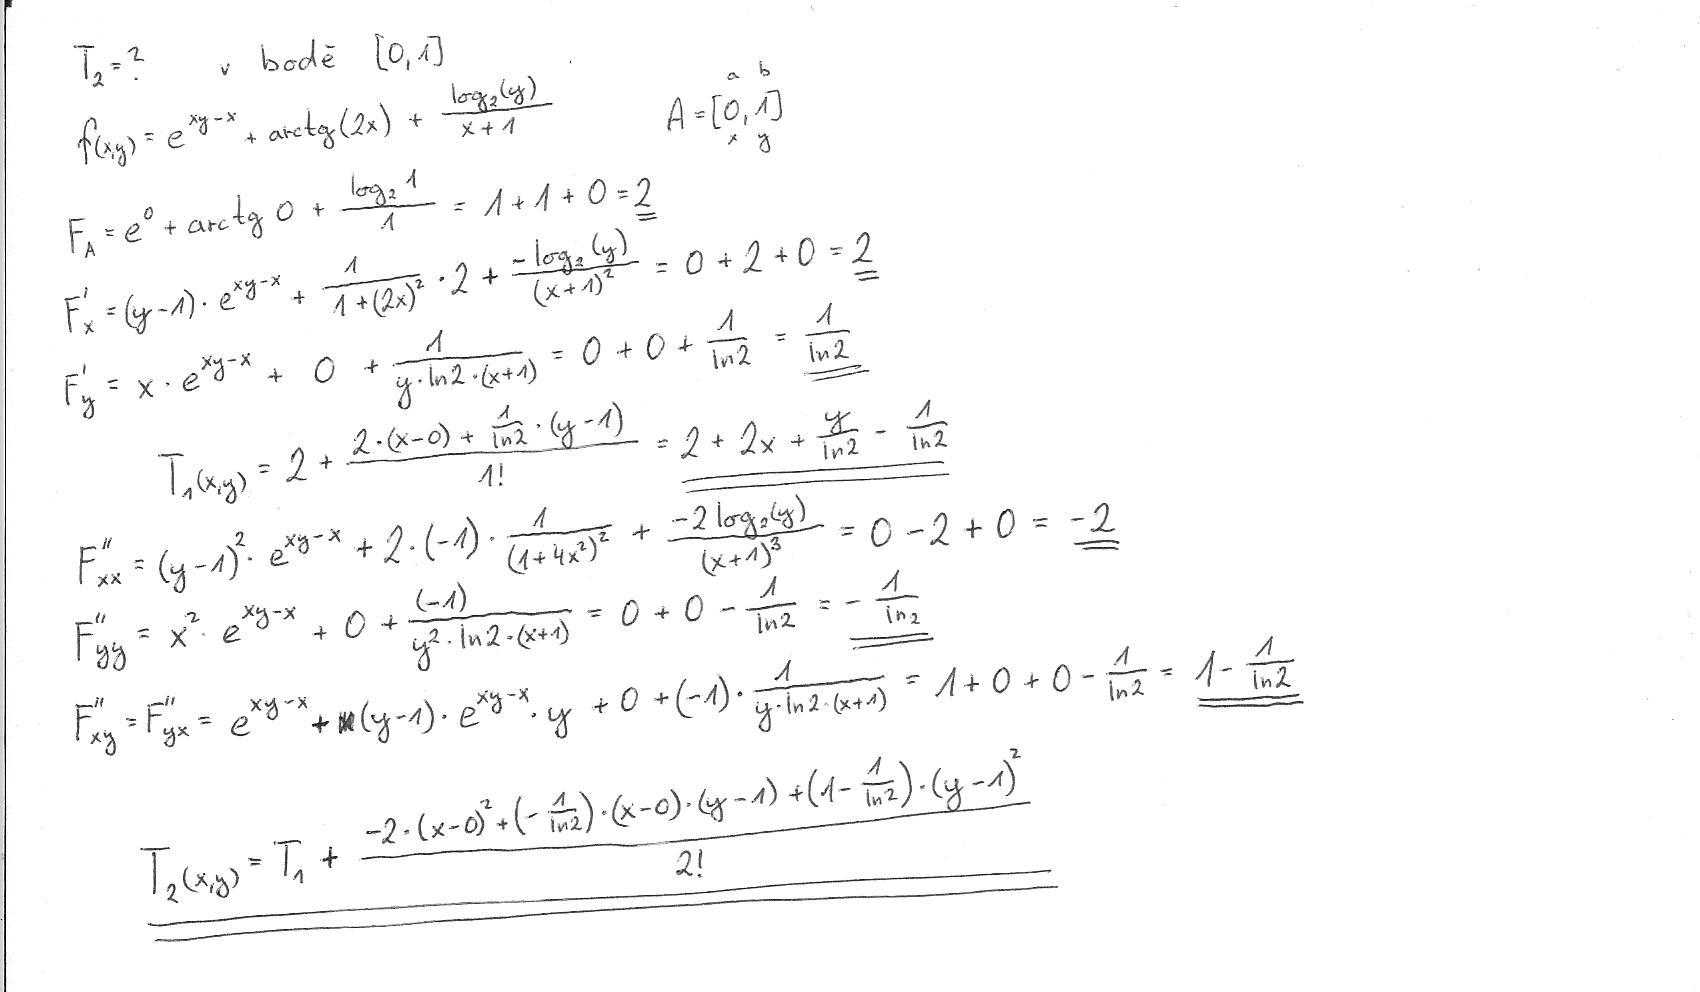 T₂ = ? v bodě [0,1]
a b
f(x,y) = e^(xy-x) + arctg(2x) + log₂(y)/(x+1) A = [0,1]
x y
F_A = e⁰ + arctg 0 + log₂1/1 = 1 + 1 + 0 = 2
F'_x = (y-1)·e^(xy-x) + 1/(1+(2x)²)·2 + -log₂(y)/(x+1)² = 0 + 2 + 0 = 2
F'_y = x·e^(xy-x) + 0 + 1/(y·ln2·(x+1)) = 0 + 0 + 1/ln2 = 1/ln2
T₁(x,y) = 2 + (2·(x-0) + 1/ln2·(y-1))/1! = 2 + 2x + y/ln2 - 1/ln2
F''_xx = (y-1)²·e^(xy-x) + 2·(-1)·1/(1+4x²)² + -2log₂(y)/(x+1)³ = 0 - 2 + 0 = -2
F''_yy = x²·e^(xy-x) + 0 + (-1)/(y²·ln2·(x+1)) = 0 + 0 - 1/ln2 = -1/ln2
F''_xy = F''_yx = e^(xy-x) + (y-1)·e^(xy-x)·y + 0 + (-1)·1/(y·ln2·(x+1)) = 1 + 0 + 0 - 1/ln2 = 1 - 1/ln2
T₂(x,y) = T₁ + (-2·(x-0)² + (-1/ln2)·(x-0)·(y-1) + (1-1/ln2)·(y-1)²)/2!